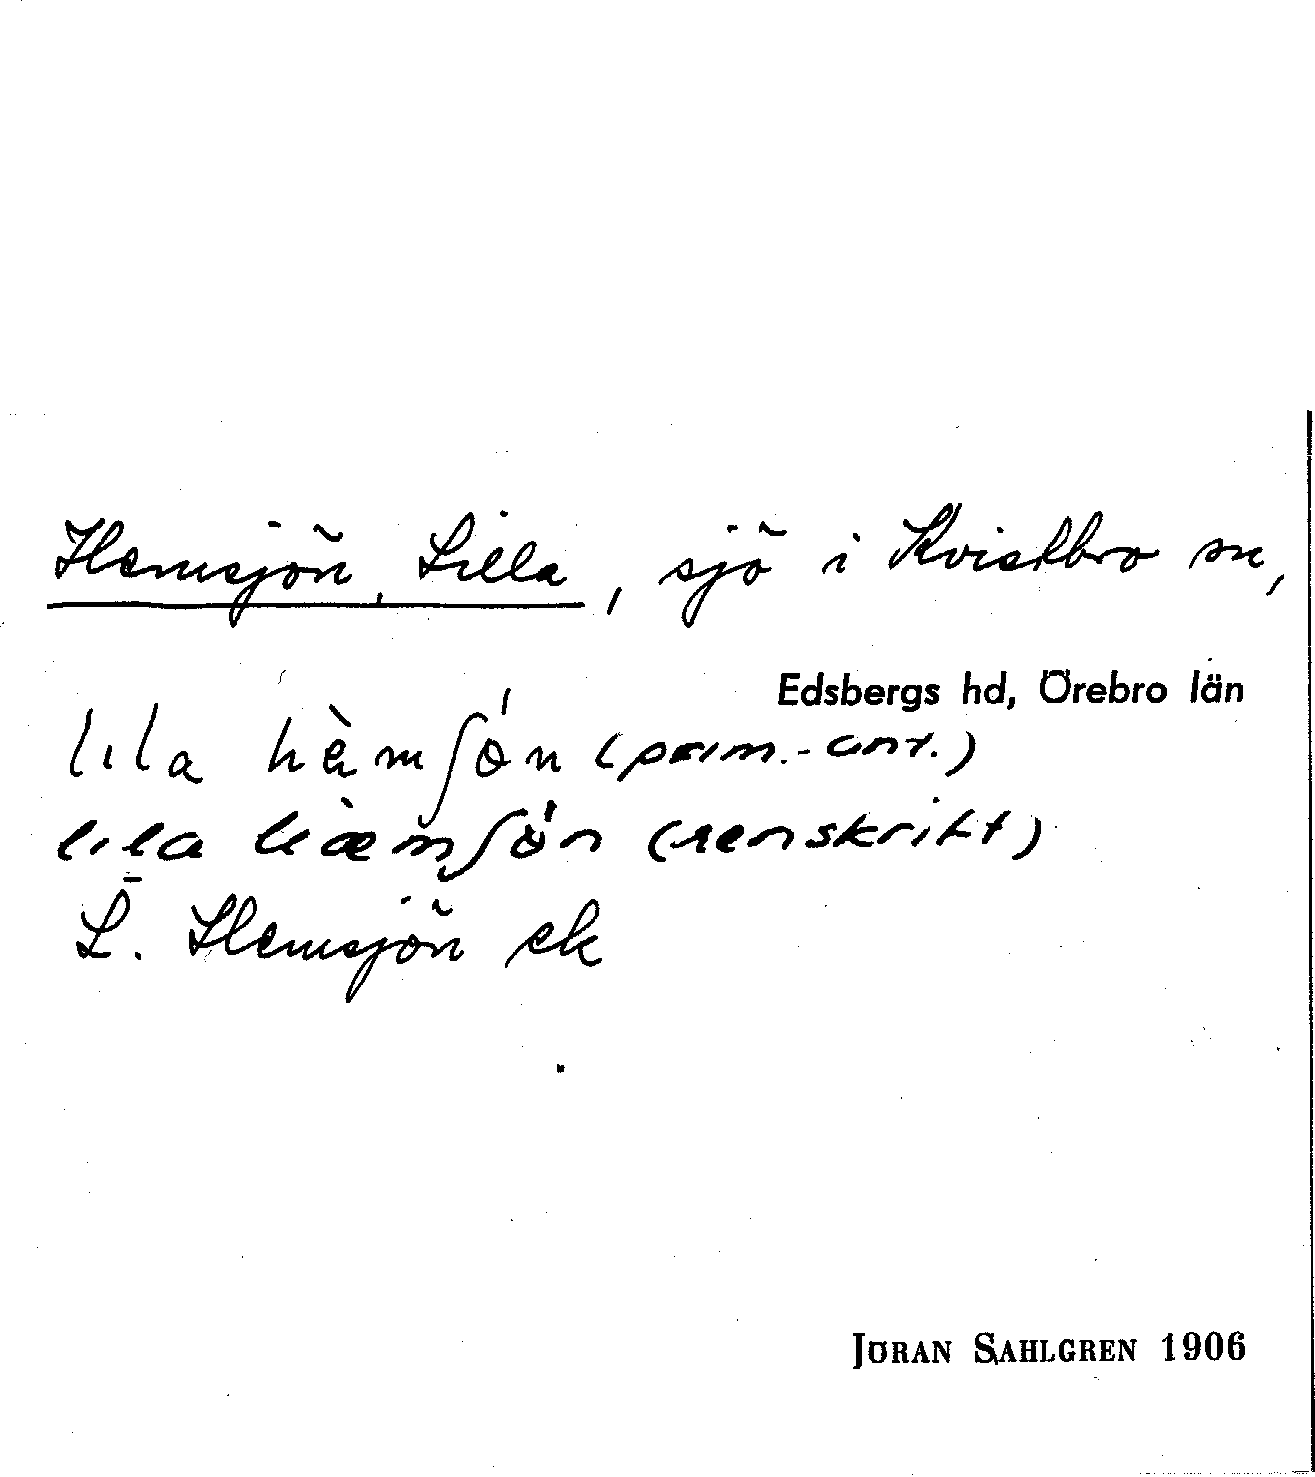 Hemsjön, Lilla, sjö i Kvistbro sn,
Edsbergs hd, Örebro län
lıla hèmʃǿn (prim.-ant.)
lıla hæ̀mʃǿn (renskrift)
L. Hemsjön ek
JÖRAN SAHLGREN 1906